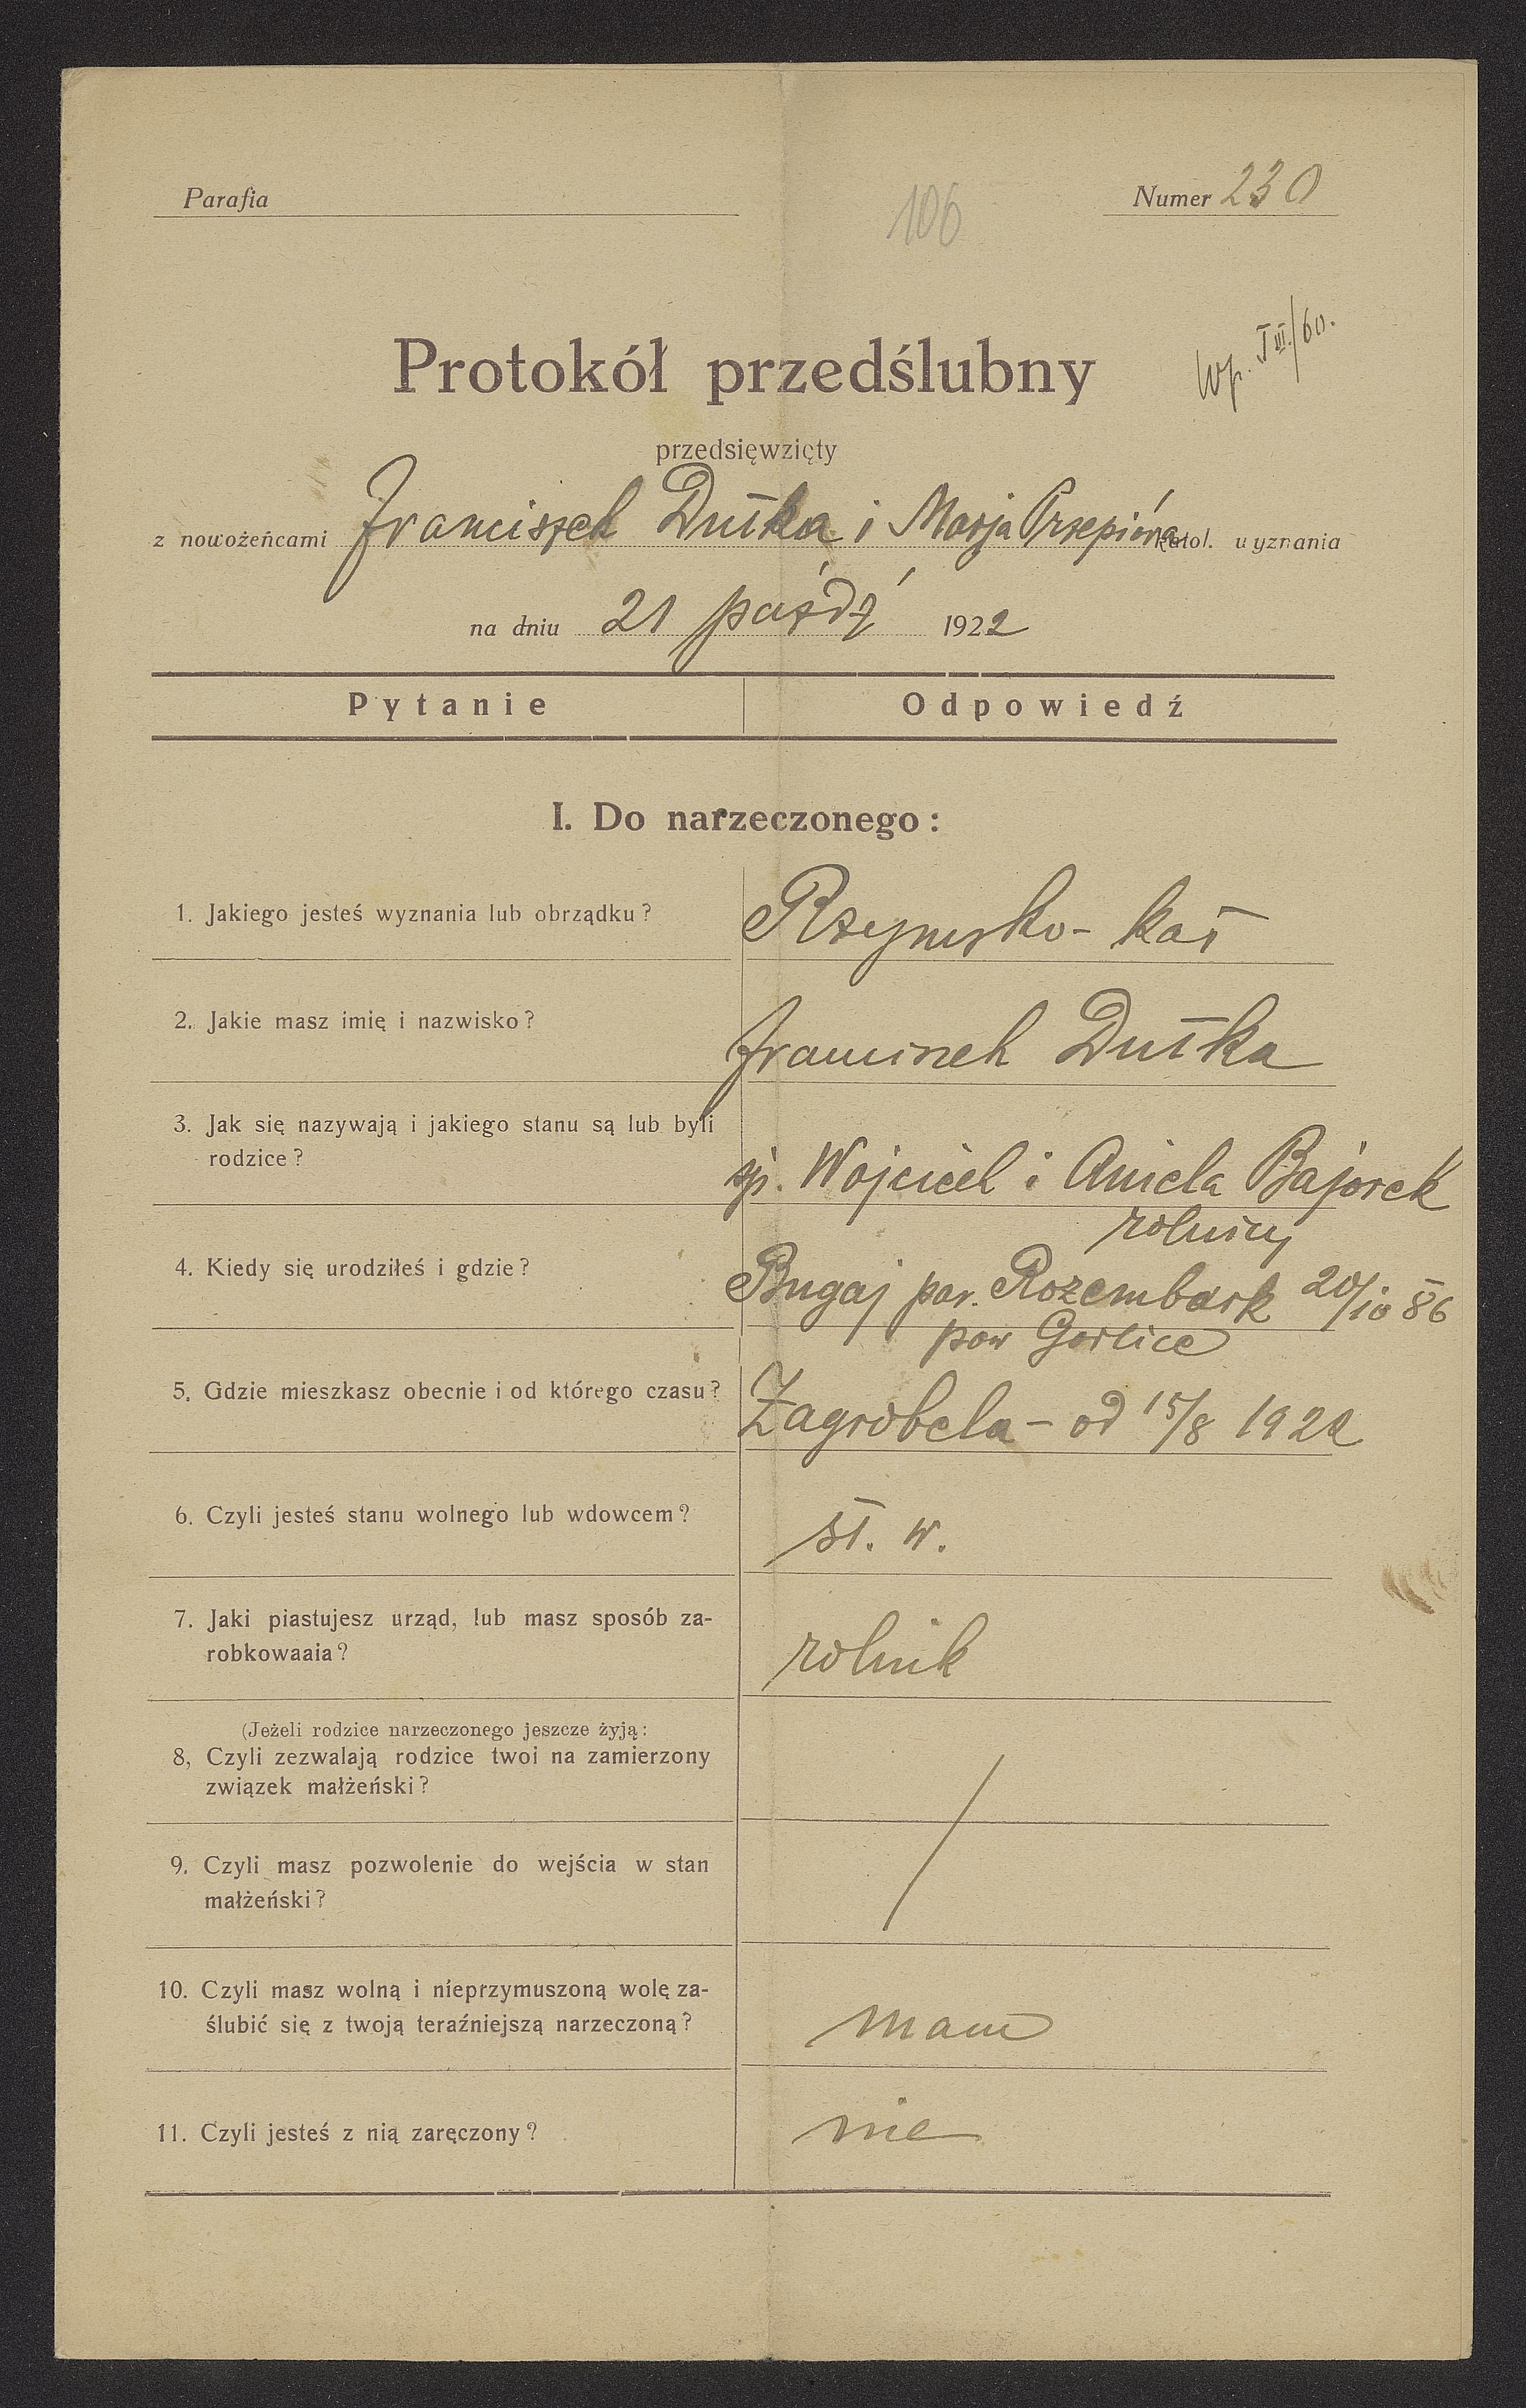 Parafia
Numer 230
106
Wp. T III/60.
Protokół przedślubny
przedsięwzięty
z nowożeńcami Franciszek Dutka i Marja Przepióra katol. wyznania
na dniu 21 paźdź 1922
Pytanie Odpowiedź
I. Do narzeczonego:
1. Jakiego jesteś wyznania lub obrządku? Rzymsko-kat
2. Jakie masz imię i nazwisko? Franciszek Dutka
3. Jak się nazywają i jakiego stanu są lub byli
rodzice? śp. Wojciech i Aniela Bajorek
rolnicy
4. Kiedy się urodziłeś i gdzie? Bugaj par. Rozembark 20/10 86
pow Gorlice
5. Gdzie mieszkasz obecnie i od którego czasu? Zagrobela - od 15/8 1922
6. Czyli jesteś stanu wolnego lub wdowcem? st. w.
7. Jaki piastujesz urząd, lub masz sposób za-
robkowaaia? rolnik
(Jeżeli rodzice narzeczonego jeszcze żyją:
8, Czyli zezwalają rodzice twoi na zamierzony
związek małżeński?
9. Czyli masz pozwolenie do wejścia w stan
małżeński?
10. Czyli masz wolną i nieprzymuszoną wolę za-
ślubić się z twoją teraźniejszą narzeczoną? mam
11. Czyli jesteś z nią zaręczony? nie